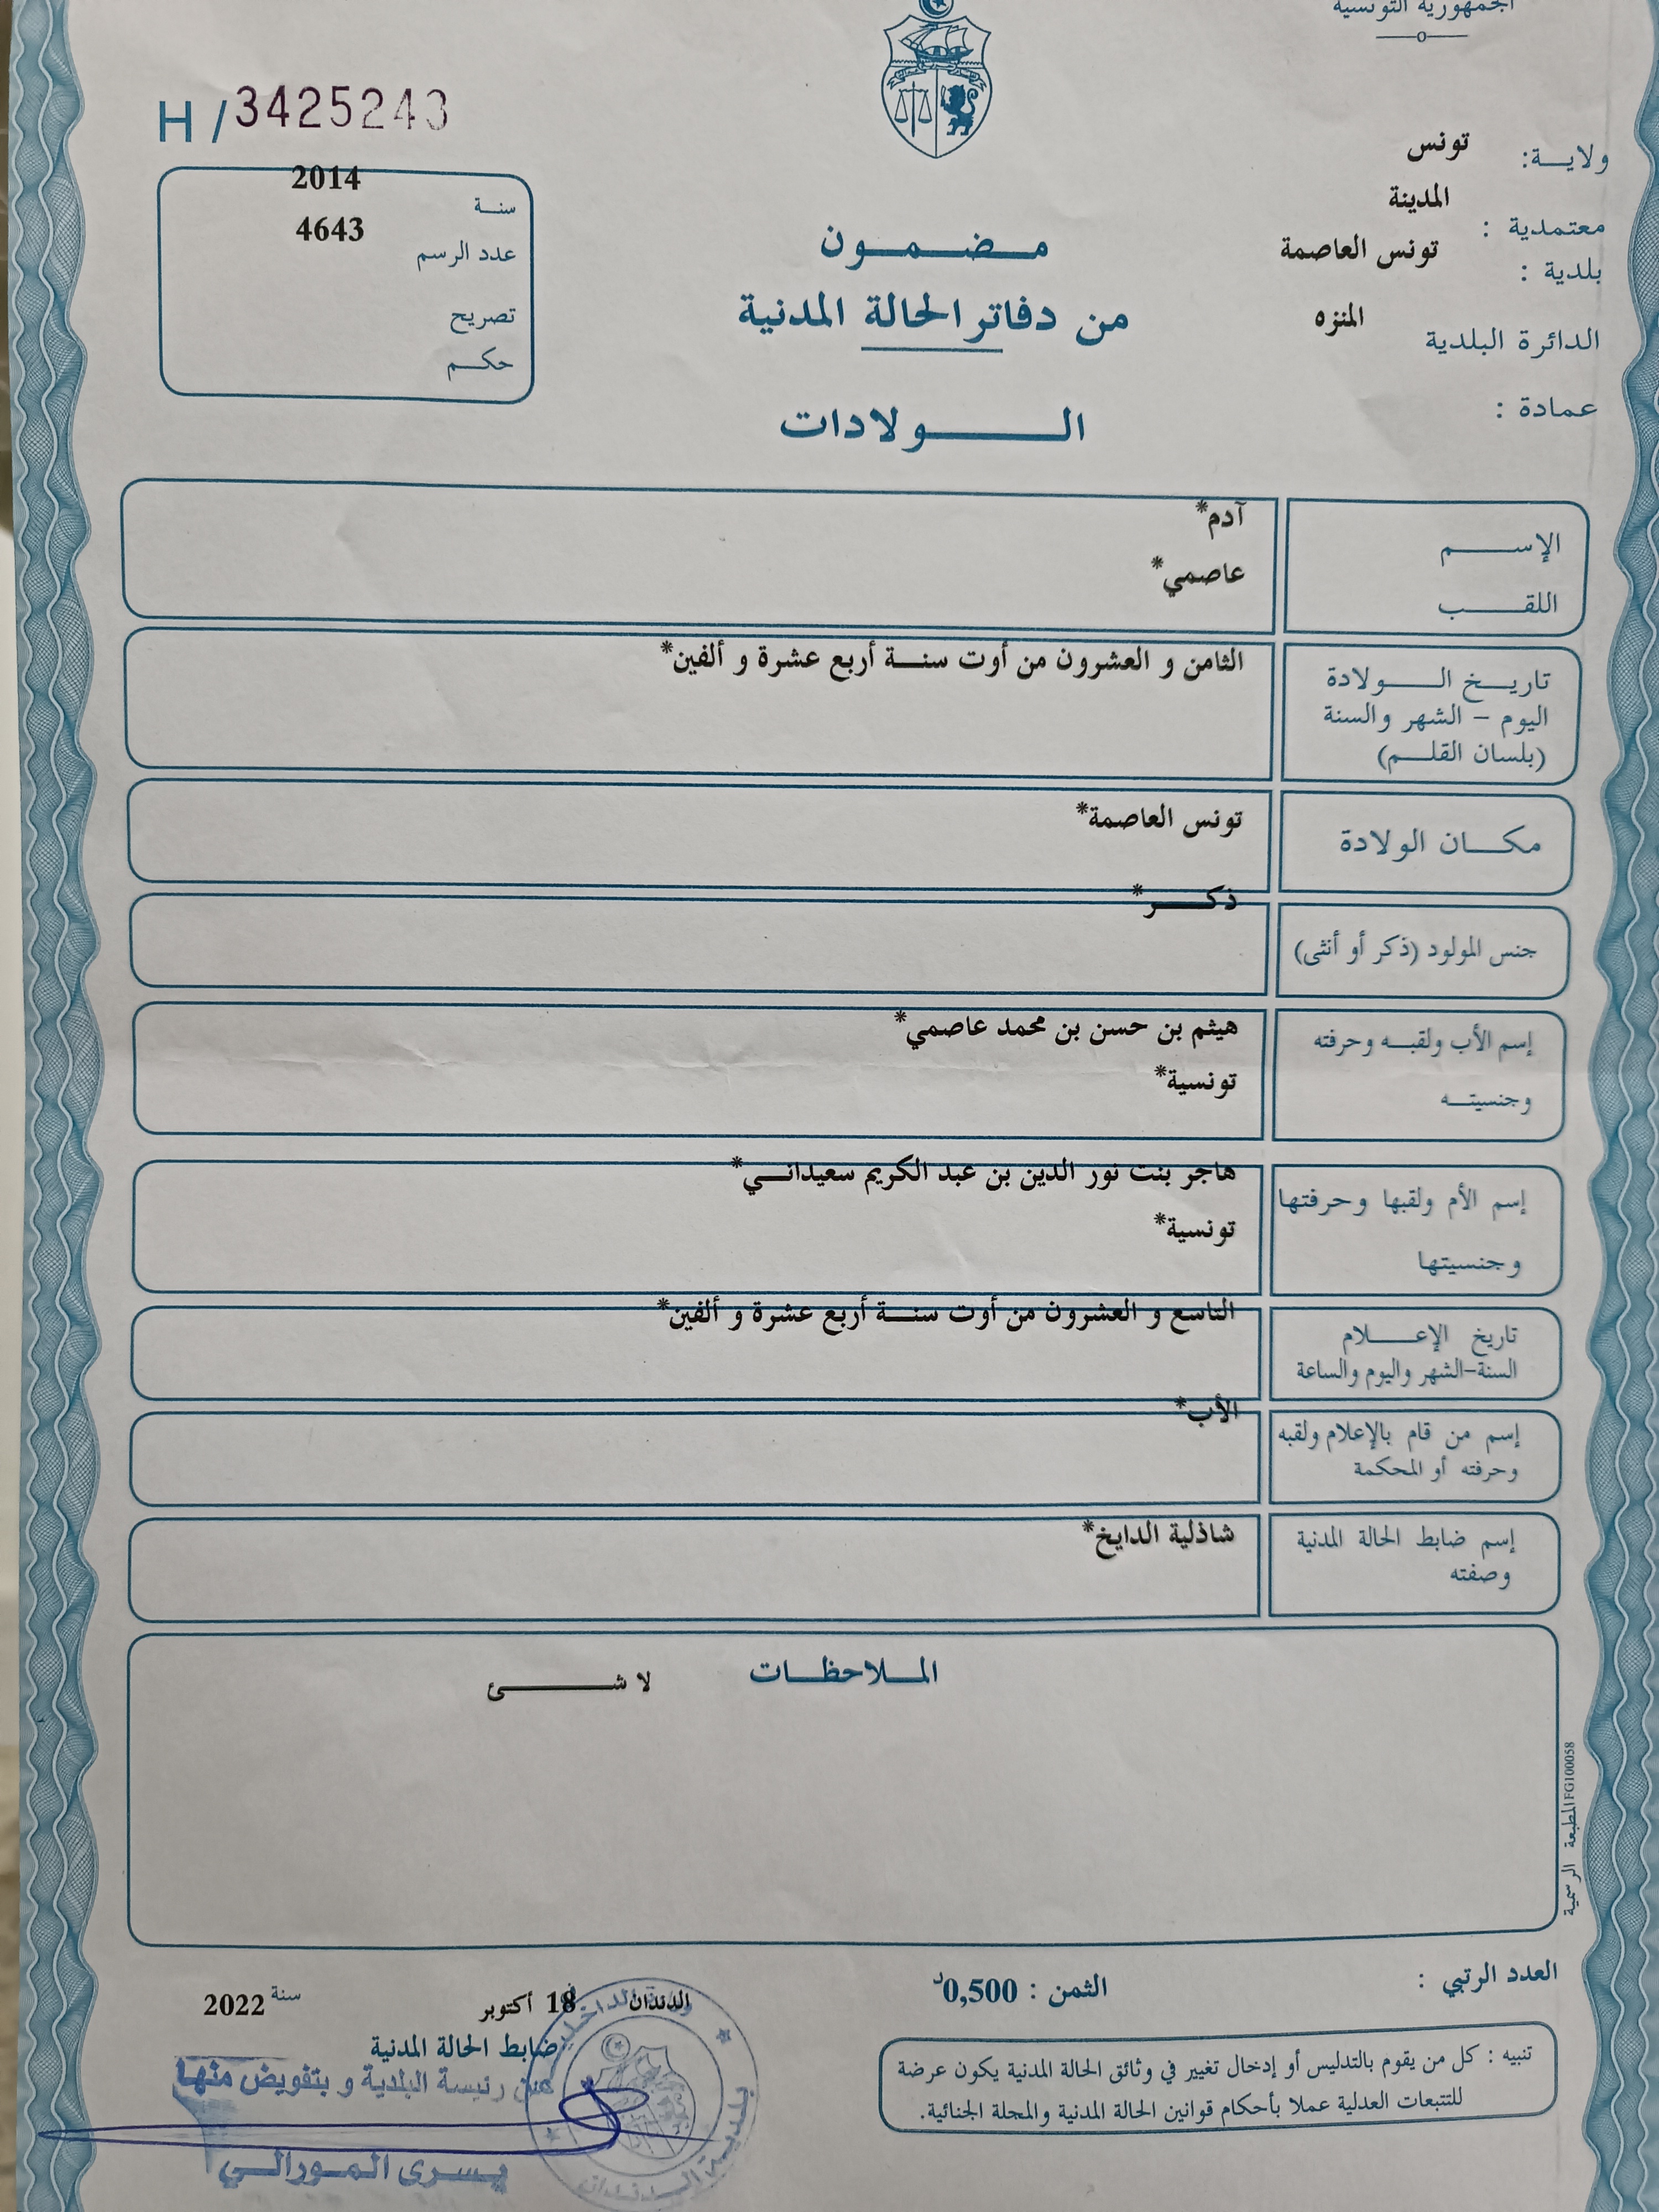 الجمهورية التونسية
H/3425243
ولايــة: تونس
معتمدية : المدينة
بلدية : تونس العاصمة
الدائرة البلدية المنزه
عمادة :
سنــة 2014
عدد الرسم 4643
تصريح
حكــم
مـضـمـون
من دفاتر الحالة المدنية
الـــولادات
الإســـم آدم*
اللقـــب عاصمي*
تاريــخ الـــولادة الثامن و العشرون من أوت سنــة أربع عشرة و ألفين*
اليوم - الشهر والسنة
(بلسان القلــم)
مكــان الولادة تونس العاصمة*
جنس المولود (ذكر أو أنثى) ذكـــر*
إسم الأب ولقبــه وحرفته هيثم بن حسن بن محمد عاصمي*
وجنسيتــه تونسية*
إسم الأم ولقبها وحرفتها هاجر بنت نور الدين بن عبد الكريم سعيدانــي*
وجنسيتها تونسية*
تاريخ الإعــلام التاسع و العشرون من أوت سنــة أربع عشرة و ألفين*
السنة-الشهر واليوم والساعة
إسم من قام بالإعلام ولقبه الأب*
وحرفته أو المحكمة
إسم ضابط الحالة المدنية شاذلية الدايخ*
وصفته
المـلاحظـات
لا شــــئ
المطبعة الرسمية FG100058
العدد الرتبي :
الثمن : 0,500د
الدندان
18 أكتوبر
سنة 2022
ضابط الحالة المدنية
عن رئيسة البلدية و بتفويض منها
يسرى المورالي
بلدية الدندان
تنبيه : كل من يقوم بالتدليس أو إدخال تغيير في وثائق الحالة المدنية يكون عرضة
للتتبعات العدلية عملا بأحكام قوانين الحالة المدنية والمجلة الجنائية.